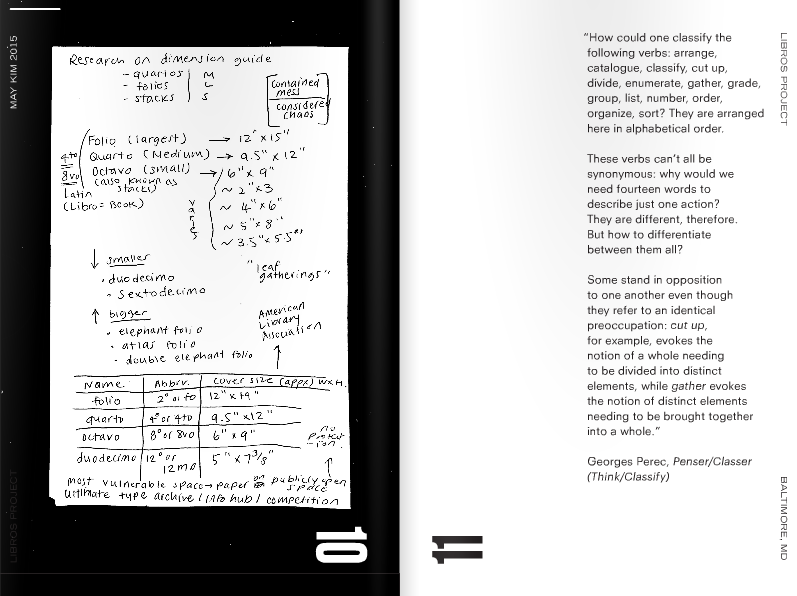 MAY KIM 2015
LIBROS PROJECT
Research on dimension guide
- quartos | M
- folios | L
- stacks | S
contained
mess
considered
chaos
Folio (largest) → 12" x 15"
Quarto (Medium) → 9.5" x 12"
Octavo (small) → 6" x 9"
(also known as
stacks)
4to
8vo
Latin
(Libro = Book)
varies
~ 2" x 3
~ 4" x 6"
~ 5" x 8"
~ 3.5" x 5.5"
↓ smaller
• duodecimo
• sextodecimo
"leaf
gatherings"
↑ bigger
• elephant folio
• atlas folio
• double elephant folio
American
Library
Association
Name. Abbrv. cover size (appx) WxH.
folio 2° or fo 12" x 19"
quarto 4° or 4to 9.5" x 12"
octavo 8° or 8vo 6" x 9"
duodecimo 12° or 5" x 7 3/8"
12mo
no
protect
-ion.
most vulnerable space → paper on publicly open
space
ultimate type archive / info hub / competition
10
11
"How could one classify the
following verbs: arrange,
catalogue, classify, cut up,
divide, enumerate, gather, grade,
group, list, number, order,
organize, sort? They are arranged
here in alphabetical order.
These verbs can't all be
synonymous: why would we
need fourteen words to
describe just one action?
They are different, therefore.
But how to differentiate
between them all?
Some stand in opposition
to one another even though
they refer to an identical
preoccupation: cut up,
for example, evokes the
notion of a whole needing
to be divided into distinct
elements, while gather evokes
the notion of distinct elements
needing to be brought together
into a whole."
Georges Perec, Penser/Classer
(Think/Classify)
LIBROS PROJECT
BALTIMORE, MD